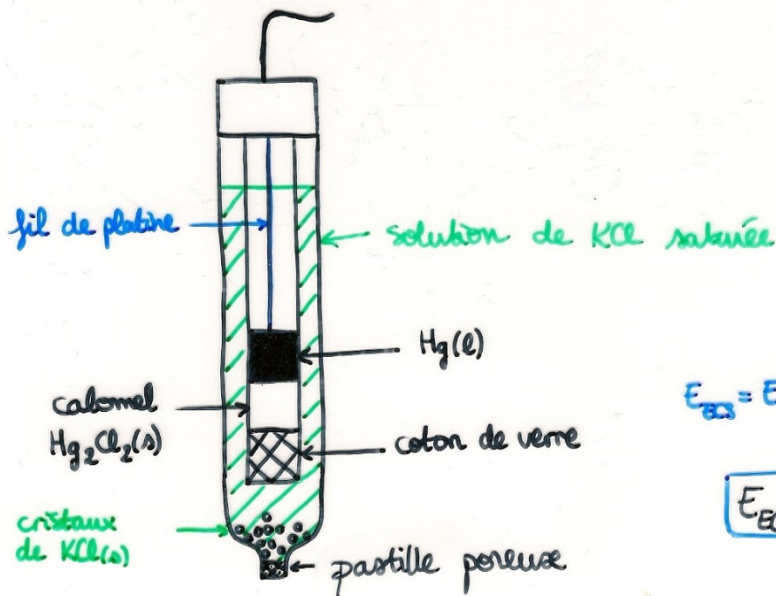 fil de platine
solution de KCl saturée
Hg(l)
calomel
Hg₂Cl₂(s)
coton de verre
E_ECS = E
E_EC
cristaux
de KCl(s)
pastille poreuse